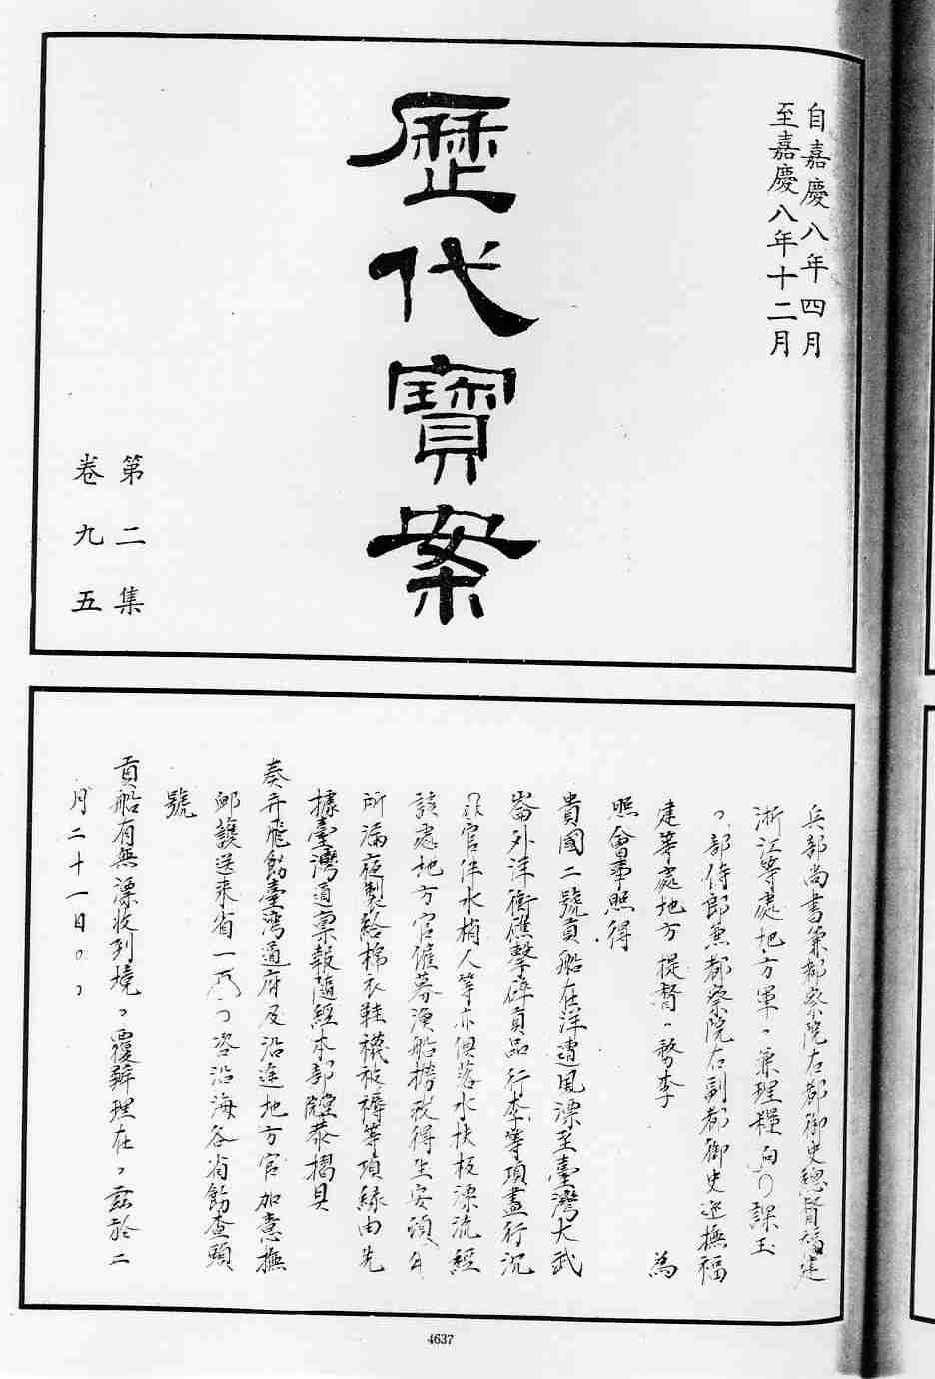 自嘉慶八年四月
至嘉慶八年十二月
歷代寶案
第二集
卷九五
兵部尚書兼都察院右都御史總督福建
浙江等處地方軍ヽ兼理糧向課玉
部侍郎兼都察院右副都御史巡撫福
建等處地方提督ヽ務李 為
照會事照得
貴國二號貢船在洋遭風漂至臺灣大武
崙外洋衝礁擊碎貢品行李等項盡行沉
官伴水梢人等亦俱落水扶板漂流經
該處地方官僱募漁船撈救得生安頓
所漏夜製給棉衣鞋襪被褥等項緣由先
據臺灣道稟報隨經本部院恭摺具
奏并飛飭臺灣道府及沿途地方官加意撫
卹護送來省一咨沿海各省飭查頭
號
貢船有無漂收到境ヽ覆辦理在ヽ茲於二
月二十一日
4637